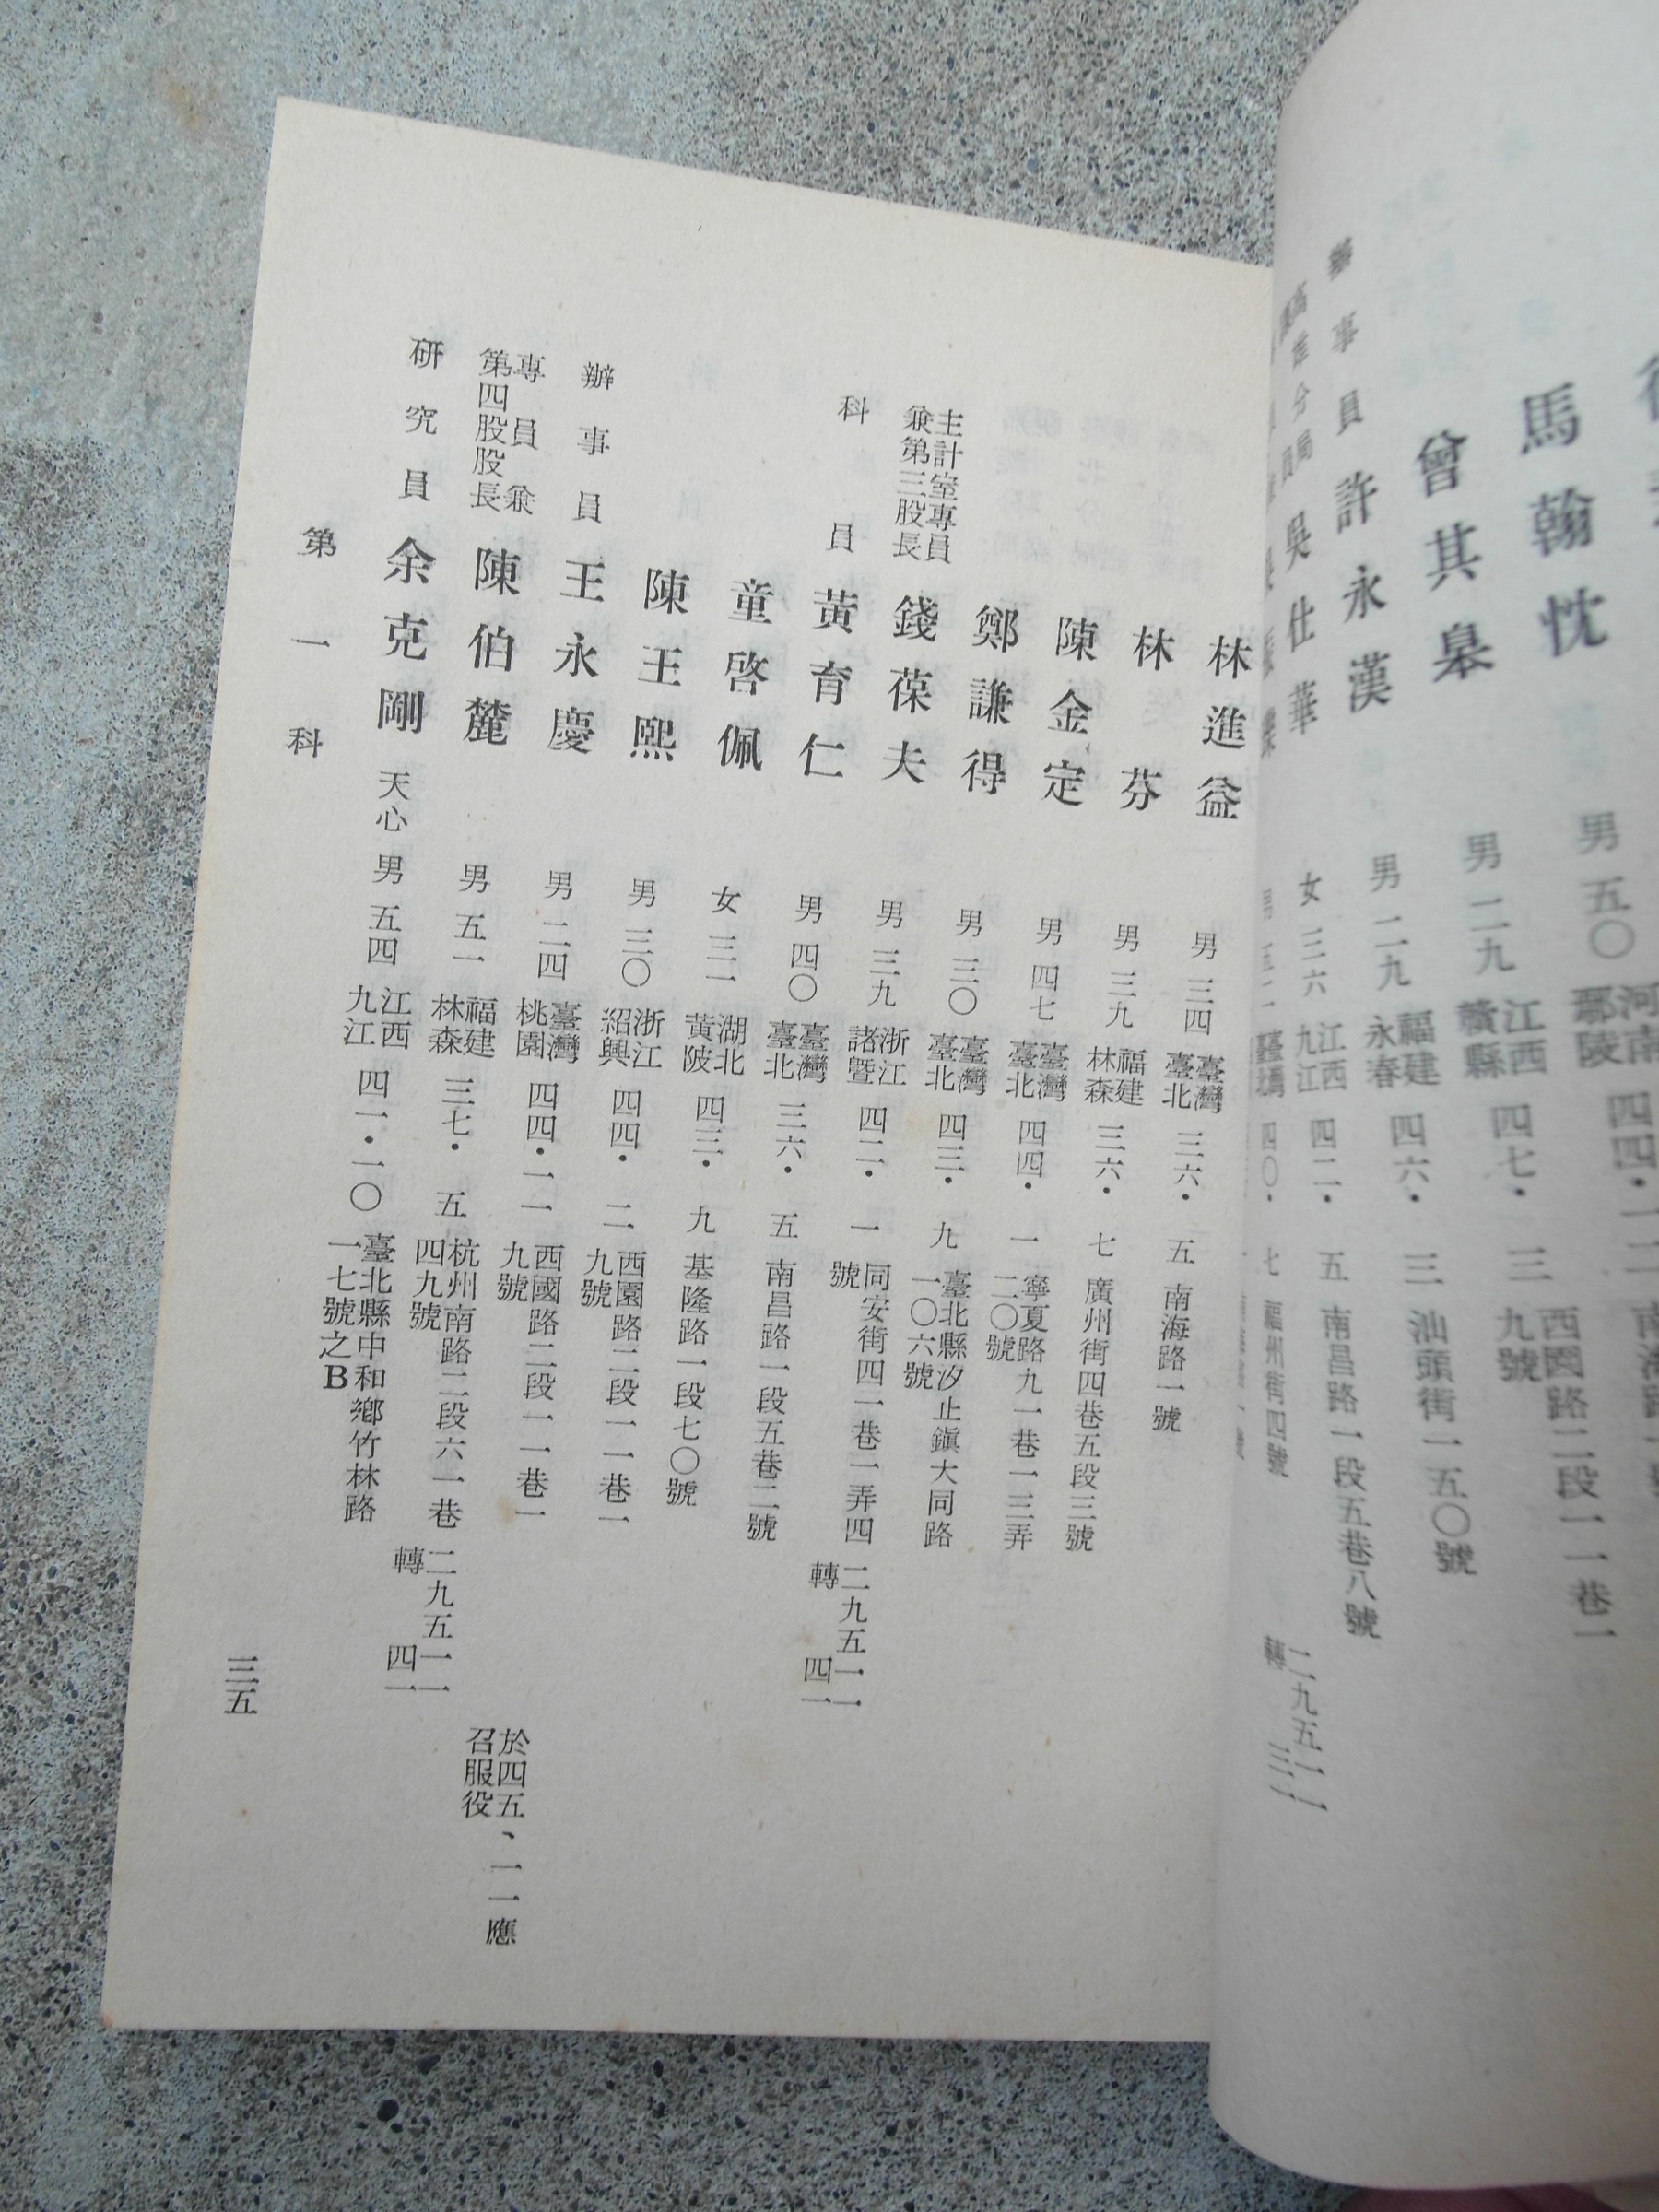 馬翰忱 男 五〇 河南鄢陵 四四・一二
曾其皋 男 二九 江西贛縣 四七・三 西園路二段一一巷一九號
辦事員 許永漢 男 二九 福建永春 四六・三 汕頭街一五〇號
吳仕華 女 三六 江西九江 四二・五 南昌路一段五巷八號
男 五二 臺灣臺北 四〇・七 福州街四號
林進益 男 三四 臺灣臺北 三六・五 南海路一號
林芬 男 三九 福建林森 三六・七 廣州街四巷五段三號
陳金定 男 四七 臺灣臺北 四四・一 寧夏路九一巷一三弄二〇號
鄭謙得 男 三〇 臺灣臺北 四三・九 臺北縣汐止鎮大同路一〇六號
主計室專員兼第三股長 錢葆夫 男 三九 浙江諸暨 四二・一 同安街四一巷一弄四號 二九五一一轉四一
科員 黃育仁 男 四〇 臺灣臺北 三六・五 南昌路一段五巷二號
童啓佩 女 三二 湖北黃陂 四三・九 基隆路一段七〇號
陳王熙 男 三〇 浙江紹興 四四・二 西園路二段一一巷一九號
辦事員 王永慶 男 二四 臺灣桃園 四四・一一 西國路二段一一巷一九號 於四五、一一應召服役
專員兼第四股股長 陳伯麓 男 五一 福建林森 三七・五 杭州南路二段六一巷四九號 二九五一一轉四一
研究員 余克剛 天心 男 五四 江西九江 四一・一〇 臺北縣中和鄉竹林路一七號之B
第一科
三五